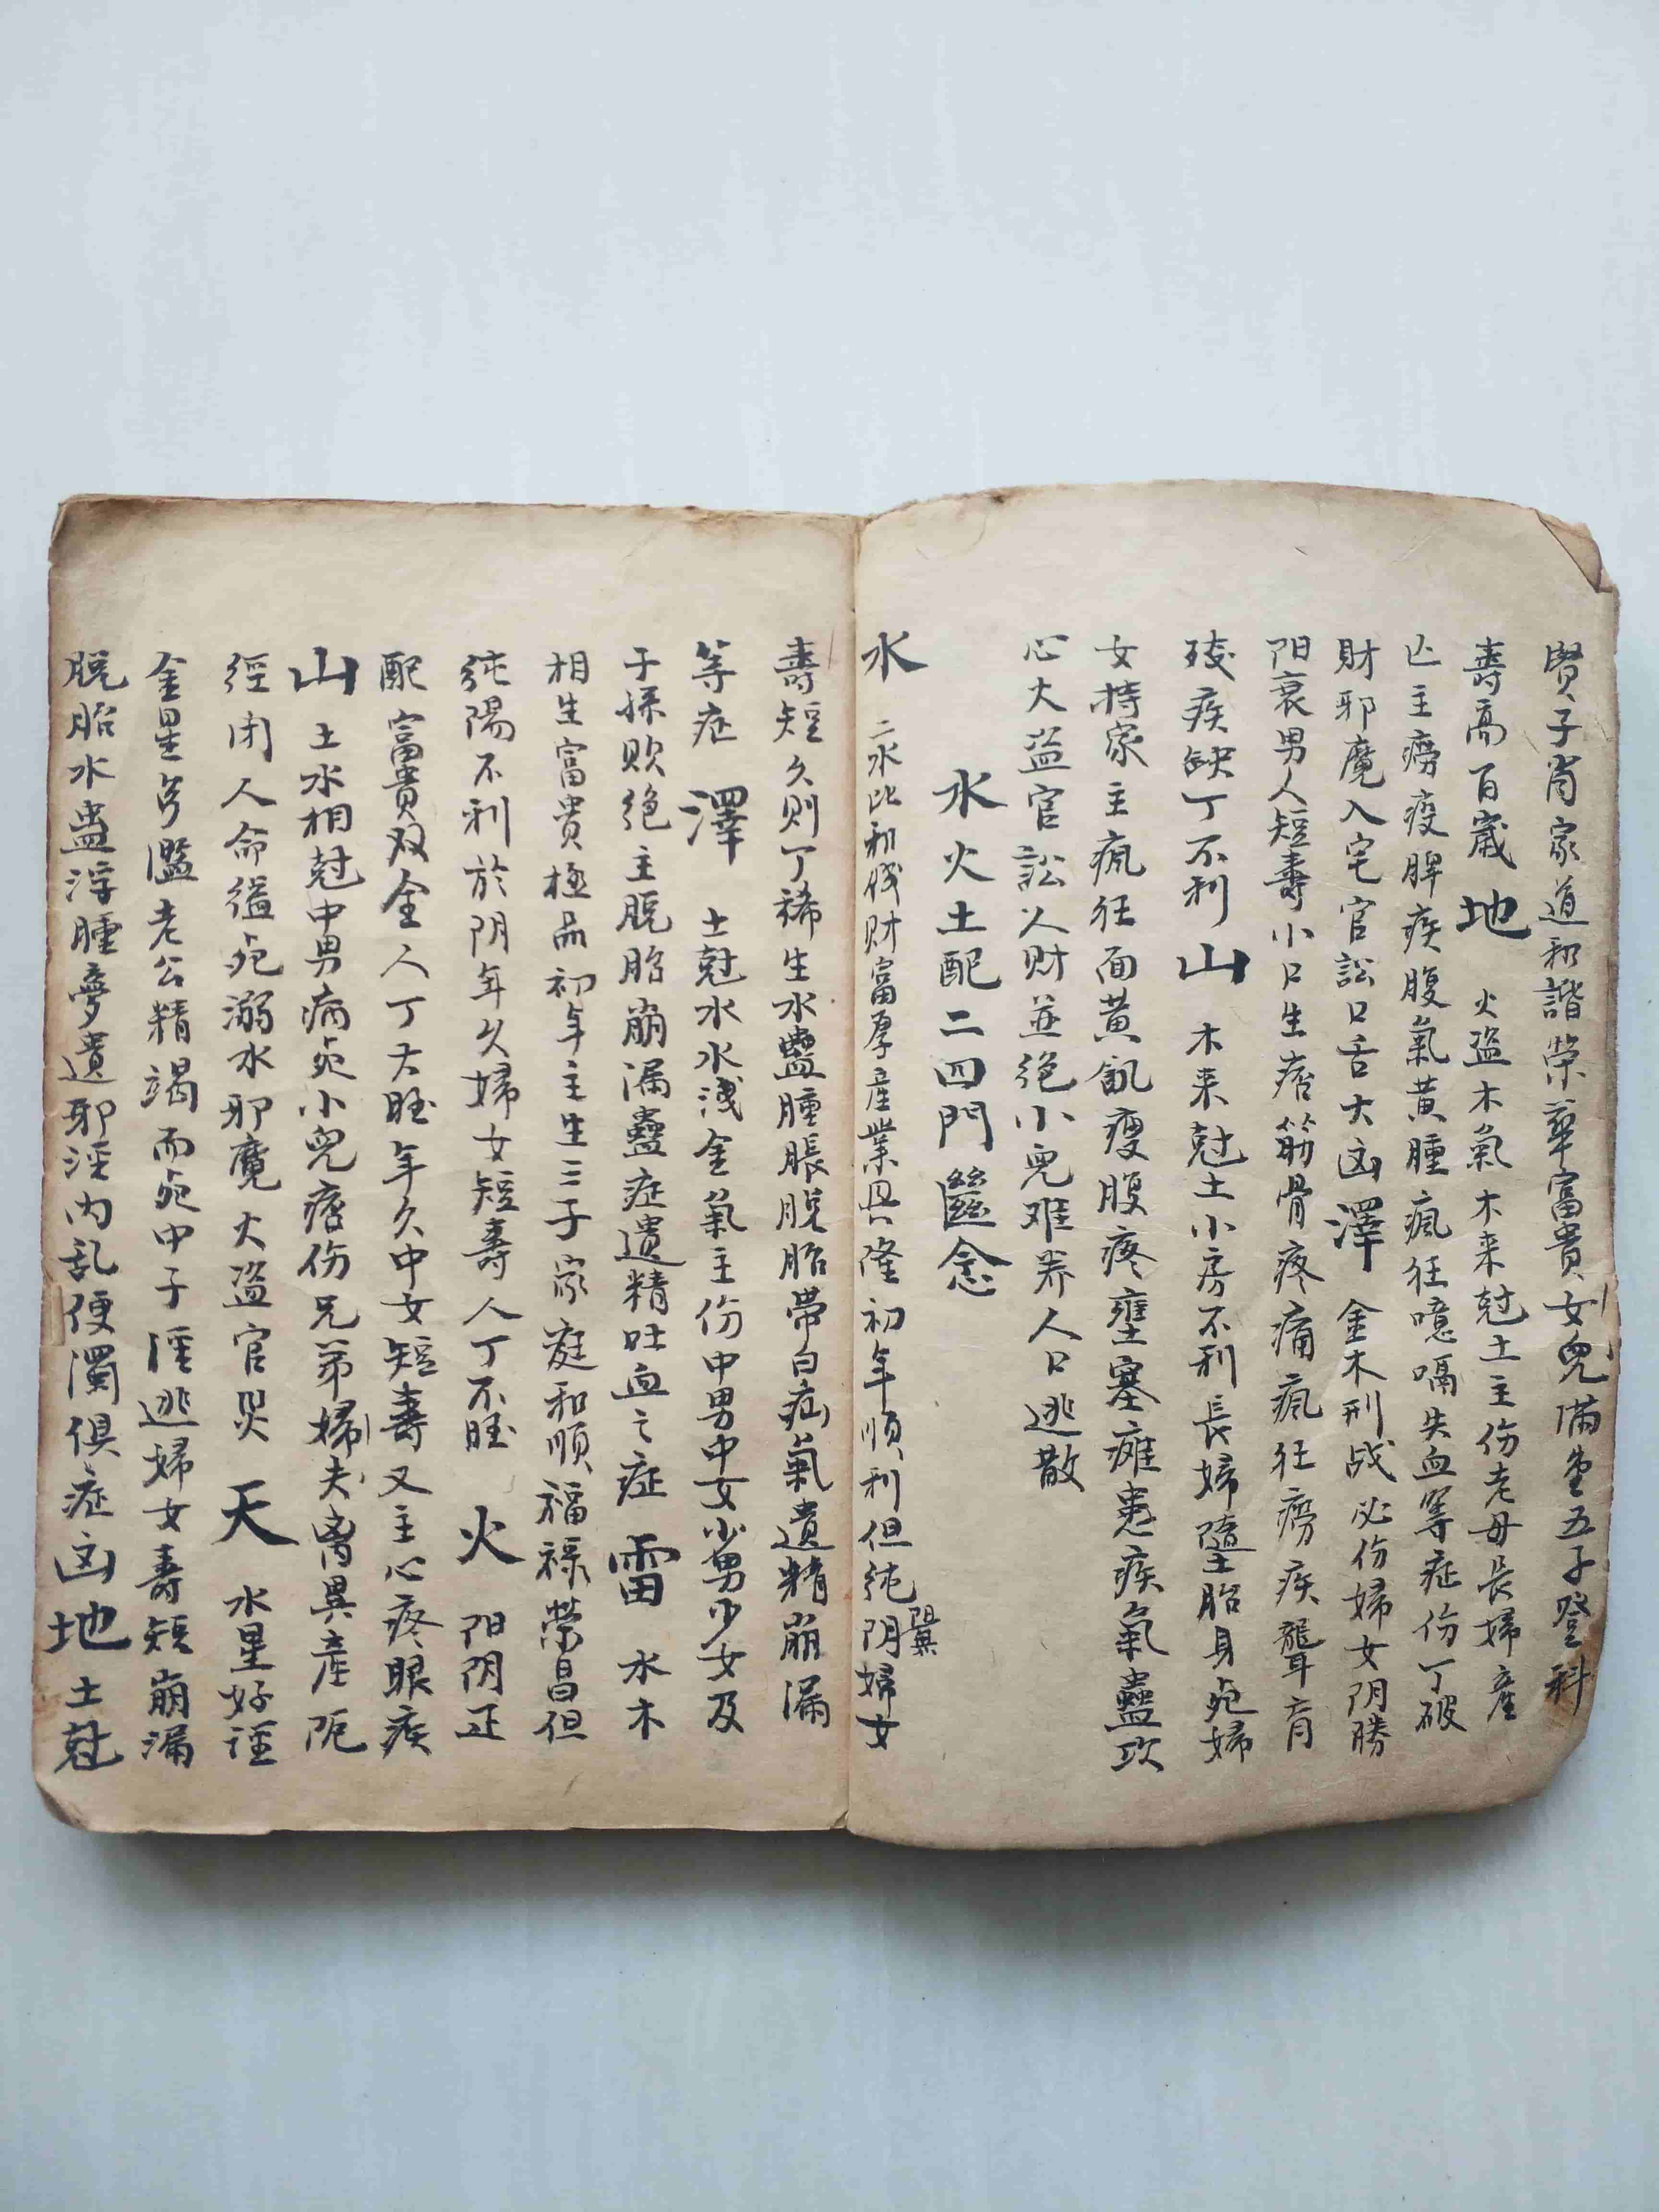 賢子肖家道和諧榮華富貴女兒滿堂五子登科
壽高百歲地火盜木氣木来尅土主伤老母長婦產
亡主癆瘦脾疾腹氣黃腫瘋狂噫嗝失血等症伤丁破
財邪魔入宅官訟口舌大凶澤金木刑战必伤婦女阴勝
阳衰男人短壽小口生瘡筋骨疼痛瘋狂癆疾聾盲
殘疾缺丁不利山木来尅土小房不利長婦墮胎身死婦
女持家主瘋狂面黃飢瘦腹疼壅塞瘫患疾氣蠱攻
心火盜官訟人财並绝小兒难养人口逃散
水火土配二四門
水二水比和伐财富厚產業興隆初年順利但纯阴婦女
陽異
壽短久则丁稀生水蠱腫脹脫胎带白疝氣遺精崩漏
等症澤土尅水水洩金氣主伤中男中女少男少女及
子孫败绝主脱胎崩漏蠱症遺精吐血之症雷水木
相生富貴極品初年主生三子家庭和順福禄榮昌但
纯陽不利於阴年久婦女短壽人丁不旺火阳阴正
配富貴双全人丁大旺年久中女短壽又主心疼眼疾
山土水相尅中男病死小兒瘡伤兄弟婦夫离異產阨
經闭人命缢死溺水邪魔火盜官哭天水星好淫
金星多濫老公精竭而死中子淫逃婦女壽短崩漏
脱胎水蛊浮腫夢遺邪淫内乱便濁俱症凶地土尅